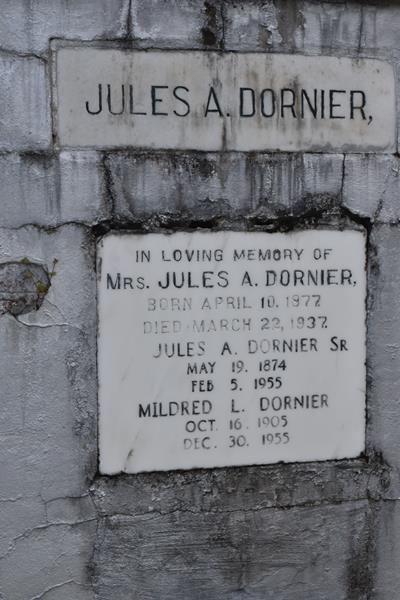 JULES A. DORNIER,
IN LOVING MEMORY OF
MRS. JULES A. DORNIER,
BORN APRIL 10. 1877
DIED MARCH 22, 1937.
JULES A. DORNIER SR
MAY 19. 1874
FEB 5. 1955
MILDRED L. DORNIER
OCT. 16. 1905
DEC. 30. 1955